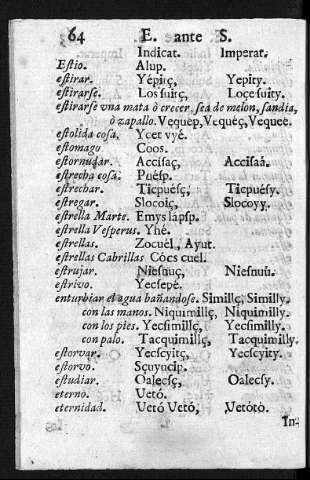 64 E. ante S.
Indicat. Imperat.
Estio. Alup.
estirar. Yépitç, Yepity.
estirarse. Los suitç, Loçesuity.
estirarse vna mata ò crecer, sea de melon, sandia,
ò zapallo. Vequep, Vequéç, Vequeê.
estolida cosa. Ycet vyé.
estomago Coos.
estornudar. Accisaç, Accisaâ.
estrecha cosa. Puésp.
estrechar. Ticpuésç, Ticpuésy.
estregar. Slocoiç, Slocoyy.
estrella Marte. Emys lapsp.
estrella Vesperus. Yhé.
estrellas. Zocuél, Ayut.
estrellas Cabrillas Cócs cuel.
estrujar. Niesnuç, Niesnuû.
estrivo. Yecsepé.
enturbiar el agua bañandose. Similsç, Similly.
con las manos. Niquimilsç, Niquimilly.
con los pies. Yecsimilsç, Yecsimilly.
con palo. Tacquimilsç, Tacquimilly.
estorvar. Yecscyitç, Yecscyity.
estorvo. Sçuyucip.
estudiar. Oalecsç, Oalecsy.
eterno. Vetó.
eternidad. Vetó Vetó, Vetótò.
In-